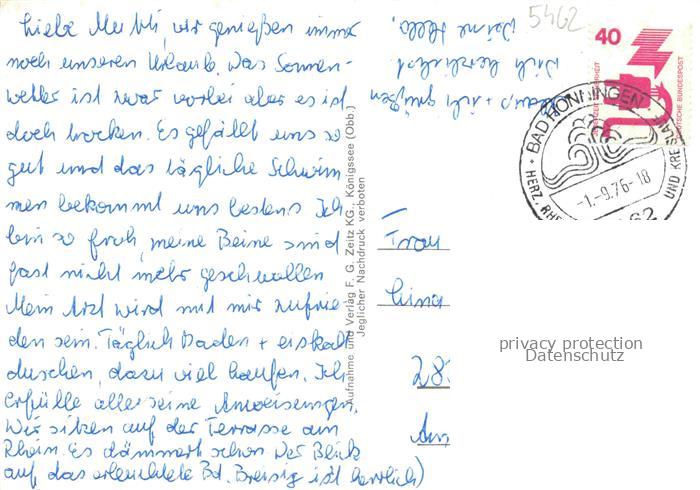 liebe Mutti, wir genießen immer
noch unseren Urlaub. Das Sonnen-
wetter ist zwar vorbei aber es ist
doch trocken. Es gefällt uns so
gut und das tägliche Schwim
men bekommt uns bestens Ich
bin so froh, meine Beine sind
fast nicht mehr geschwollen
Mein Arzt wird mit mir zufrie-
den sein. Täglich Baden + eiskalt
duschen, dazu viel laufen. Ich
erfülle alle seine Anweisungen.
Wir sitzen auf der Terrasse am
Rhein. Es dämmert schon Der Blick
auf das erleuchtete Bd. Breisig ist herrlich)
+ ich grüßen
Dich herzlichst
Deine
5462
40
DEUTSCHE BUNDESPOST
BAD HÖNNINGEN
HERZ, RHE UND KREISLAUF
-1.-9.76-18
62
Aufnahme und Verlag F. G. Zeitz KG., Königssee (Obb.)
Jeglicher Nachdruck verboten
Frau
28
privacy protection
Datenschutz